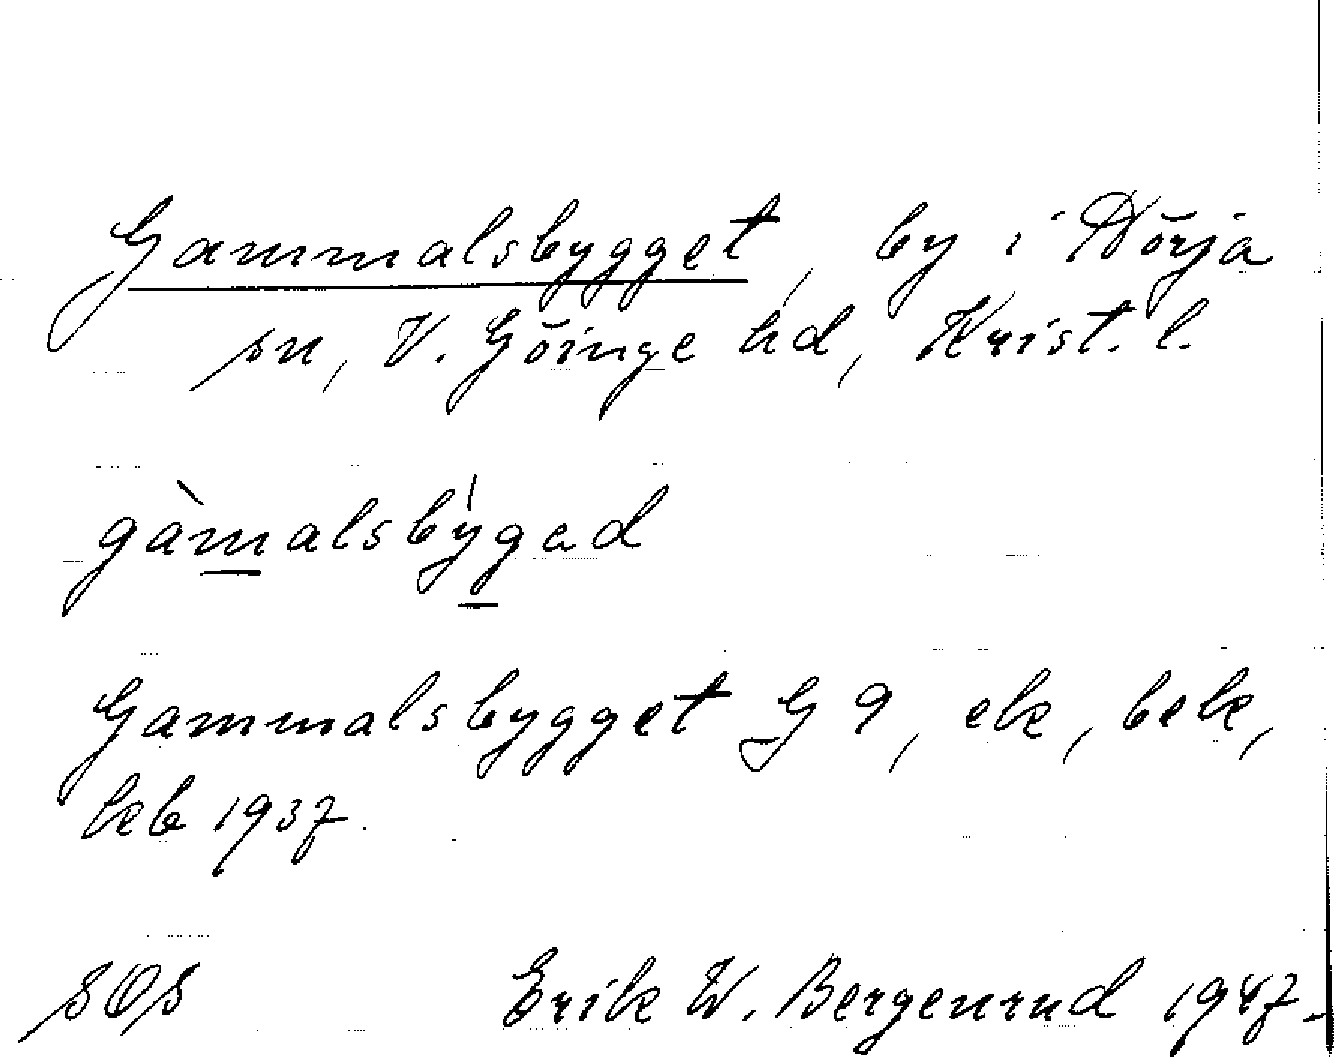 Gammalsbygget, by i Nörja
sn, V. Göinge hd, Krist. l.
gàmalsby̍gad
Gammalsbygget G 9, ek, bek,
keb 1937.
sOs Erik W. Bergenrud 1947.